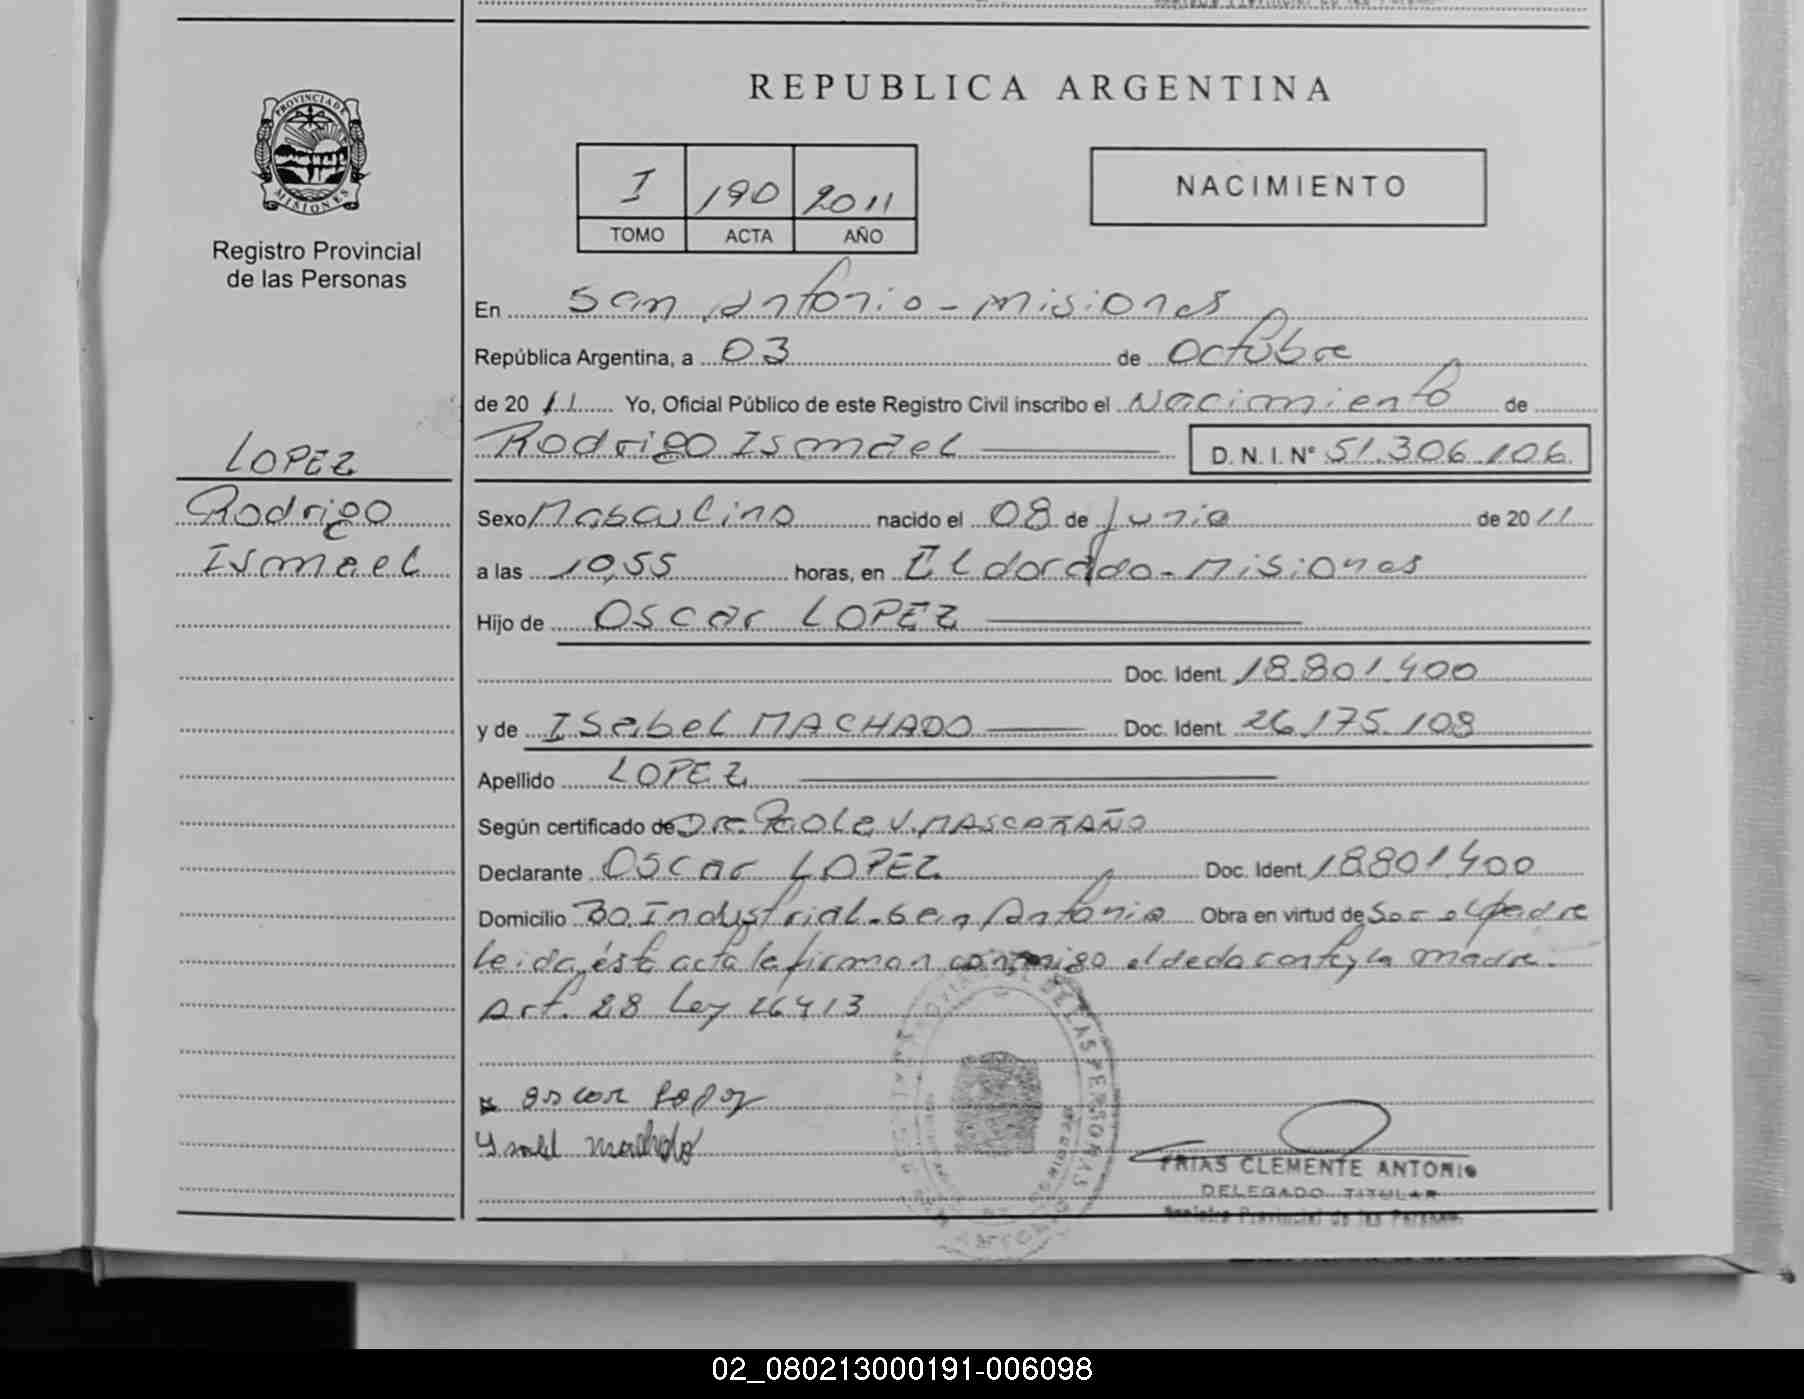 REPUBLICA ARGENTINA
PROVINCIA DE
MISIONES
Registro Provincial
de las Personas
I 190 2011
TOMO ACTA AÑO
NACIMIENTO
En San Antonio - Misiones
República Argentina, a 03 de Octubre
de 2011 Yo, Oficial Público de este Registro Civil inscribo el Nacimiento de
Rodrigo Ismael D. N. I. N° 51.306.106
LOPEZ
Rodrigo
Ismael
Sexo Masculino nacido el 08 de Junio de 2011
a las 10,55 horas, en Eldorado - Misiones
Hijo de Oscar LOPEZ
Doc. Ident. 18.801.400
y de Isabel MACHADO Doc. Ident. 26.175.108
Apellido LOPEZ
Según certificado de Dra. Paola V. MASCARAÑO
Declarante Oscar LOPEZ Doc. Ident. 18.801.400
Domicilio Bo. Industrial - San Antonio Obra en virtud de Ser el padre
leida ésta acta la firman conmigo el declarante y la madre.
Art. 28 Ley 26413
x oscar lopez
Ysabel machado
FRIAS CLEMENTE ANTONIO
DELEGADO TITULAR
Registro Provincial de las Personas
02_080213000191-006098